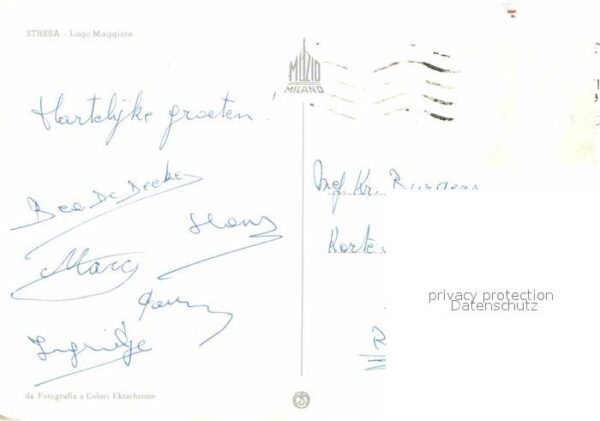 STRESA - Lago Maggiore
MUZIO
MILANO
Hartelijke groeten!
Bea De Decker
Hans
Marc
Ingridje
Kr.
Korte
privacy protection
Datenschutz
da Fotografia a Colori Ektachrome